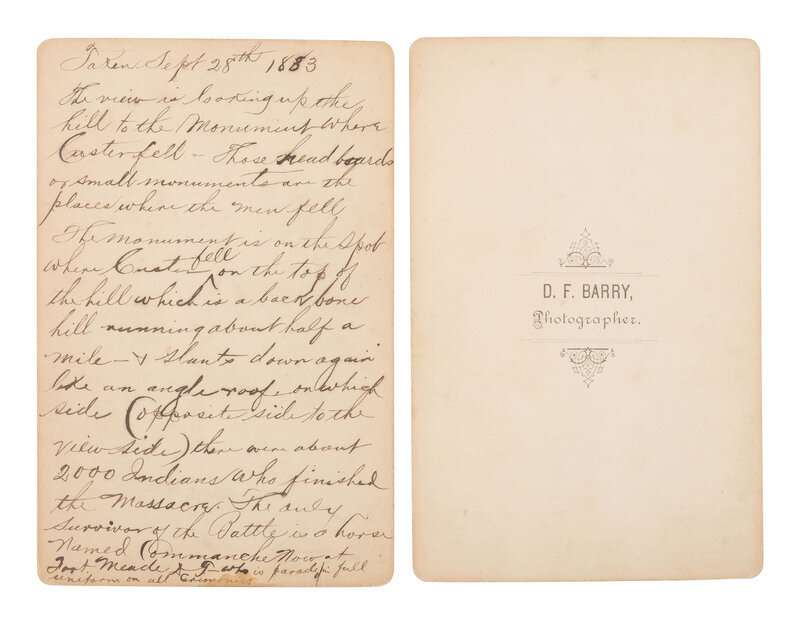 Taken Sept 28th 1883
The view is looking up the
hill to the Monument where
Custer fell - Those head boards
or small monuments are the
places where the men fell
The monument is on the spot
where Custer fell on the top of
the hill which is a back bone
hill running about half a
mile - & slants down again
like an angle roof, on which
side (opposite side to the
view side) there were about
2000 Indians who finished
the Massacre. The only
survivor of the Battle is a horse
Named Commanche Now at
Fort Meade D.T. who is paraded in full
uniform on all Cremonies
D. F. BARRY,
Photographer.